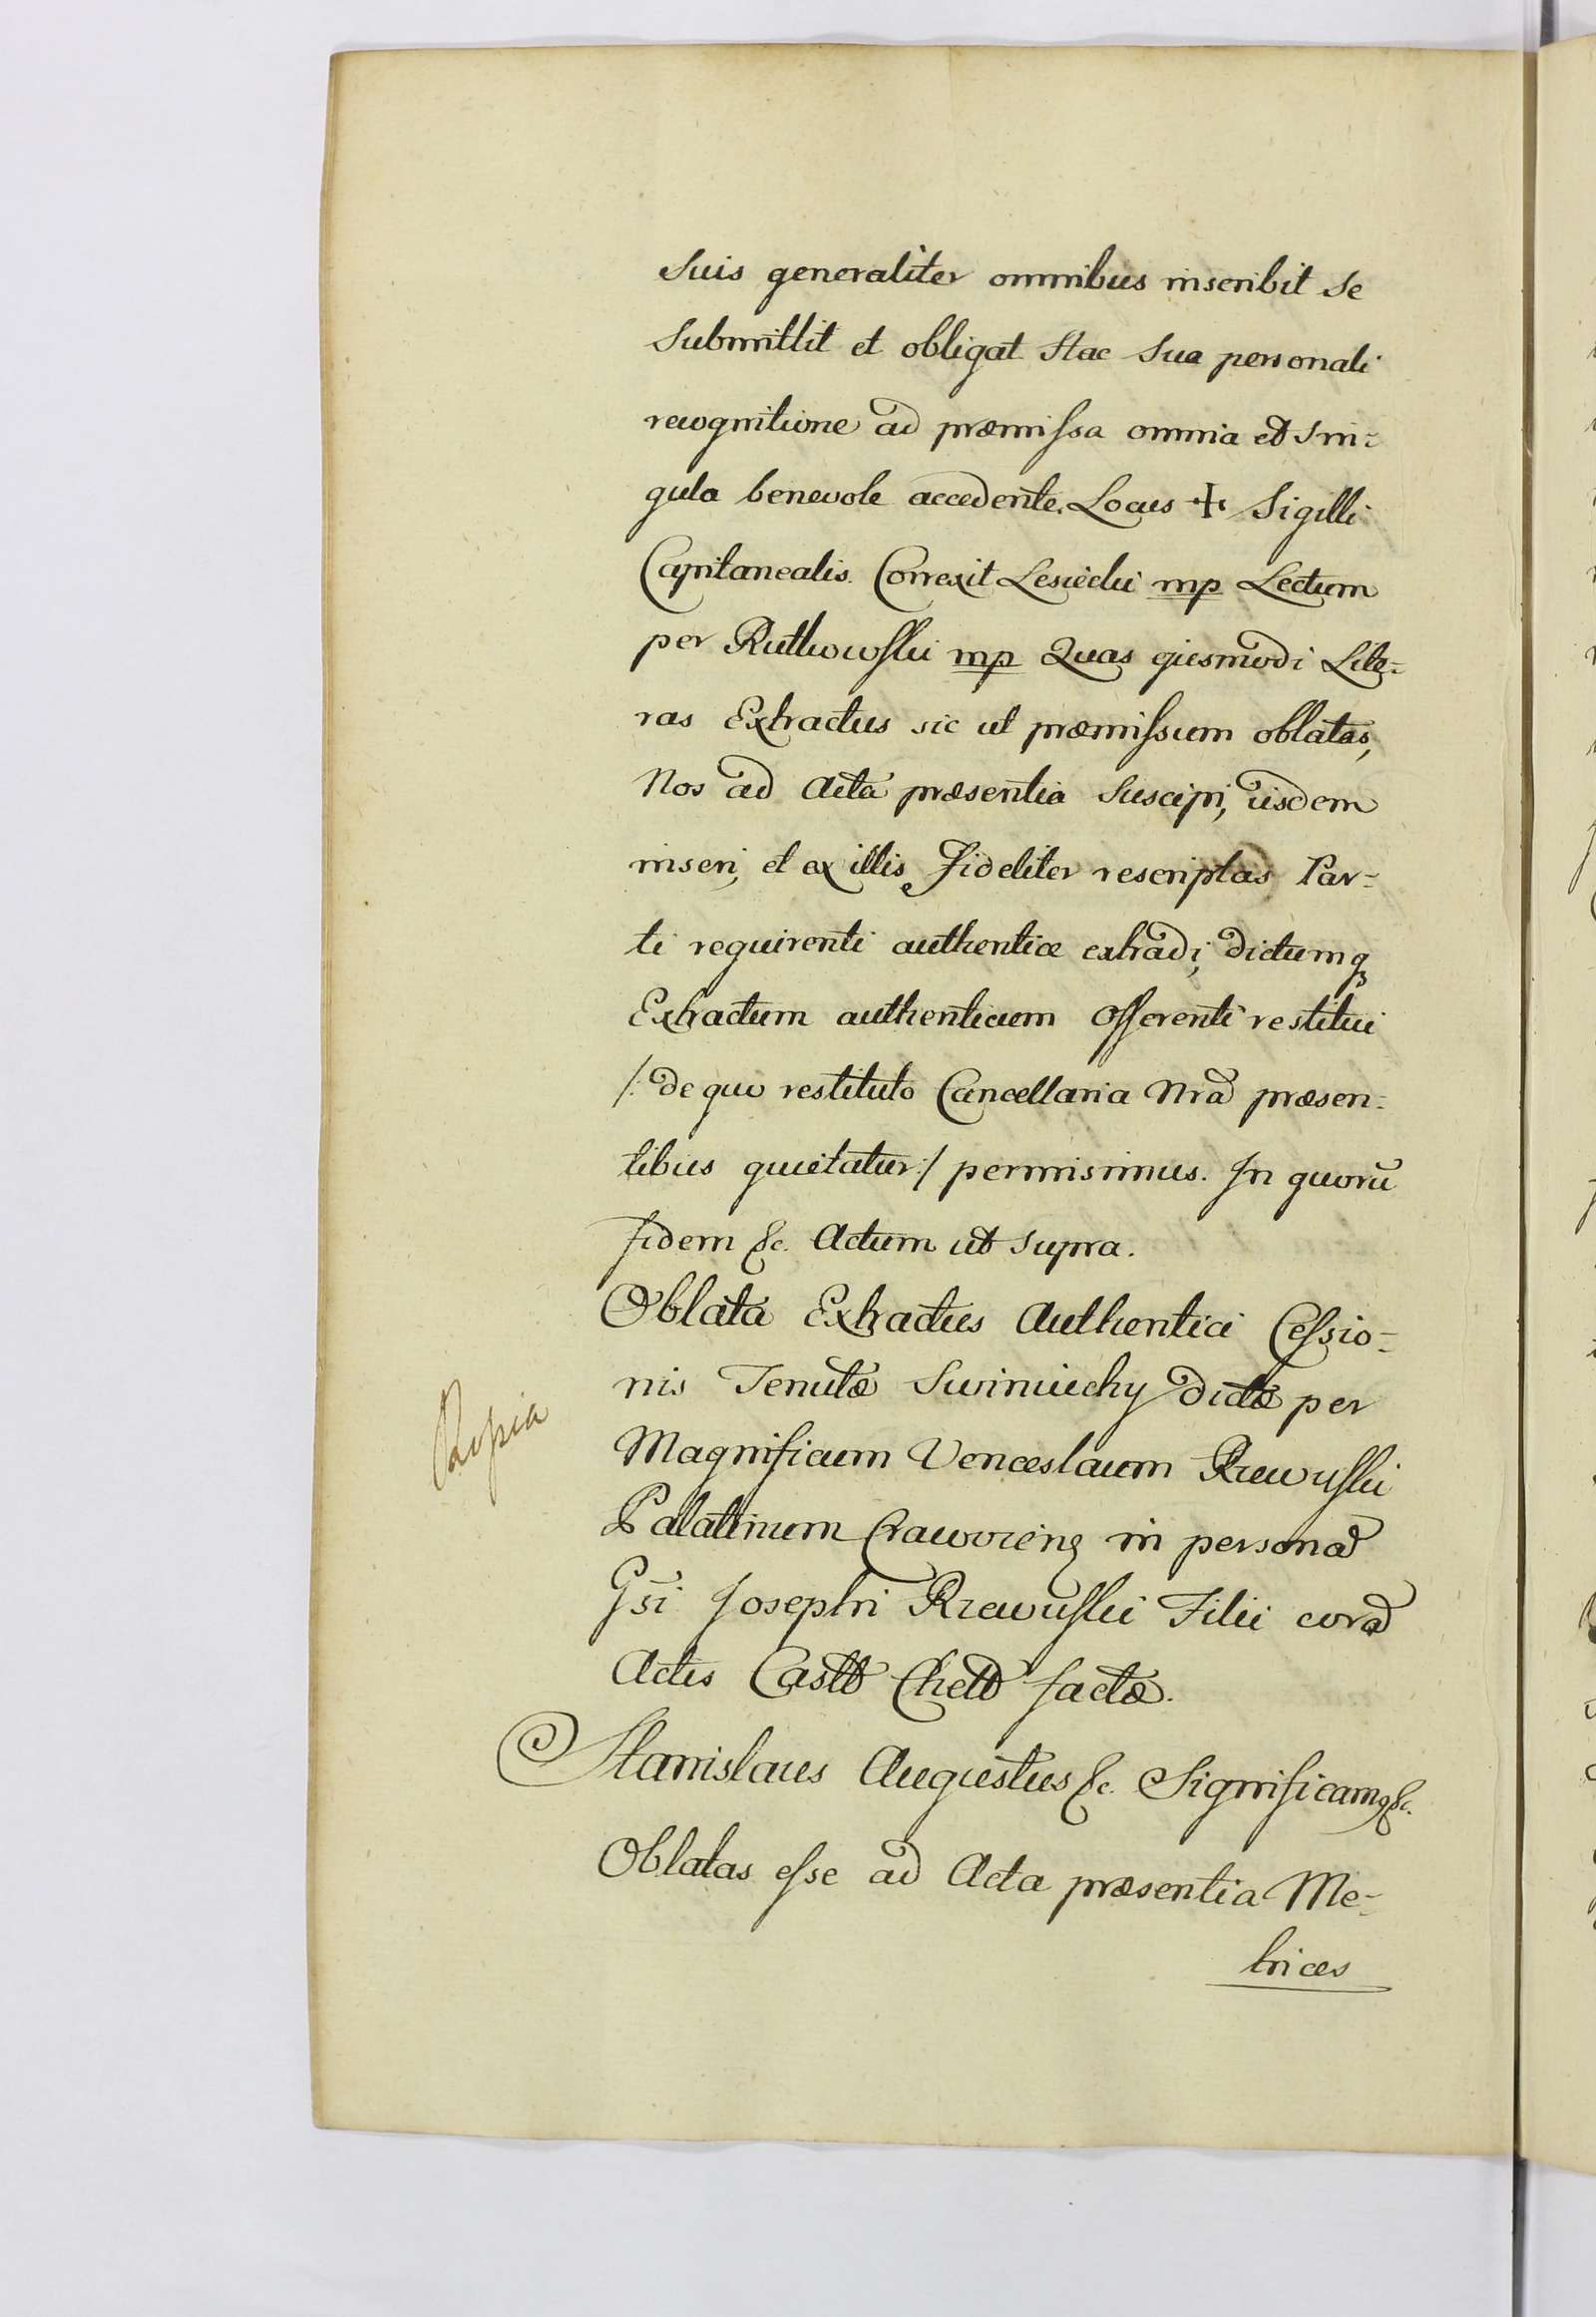 Suis generaliter omnibus inscribit Se
Submittit et obligat Hac Sua personali
recognitione ad præmissa omnia et Sin=
gula benevole accedente. Locus ✠ Sigilli
Capitanealis. Correxit Lesiecki mp Lectum
per Rutkowski mp Quas ejusmodi Lite=
ras Extractus sic ut præmissum oblatas,
Nos ad Acta præsentia Suscipi, iisdem
inseri, et ex illis fideliter rescriptas Par=
ti requirenti authentice extradi, dictumq
Extractum authenticum Offerenti restitui
/: de quo restituto Cancellaria Nra præsen=
tibus quietatur :/ permisimus. In quorū
fidem &c. Actum ut Supra.
Oblata Extractus Authentici Cessio=
nis Tenutæ Swiniuchy dictæ per
Magnificum Venceslaum Rzewuski
Palatinum Cracovieng in persona
Gsi Josephi Rzewuski Filii cora
Actis Castt Chelt factæ.
Stanislaus Augustus &c. Significamq &c.
Oblatas esse ad Acta præsentia Me=
trices